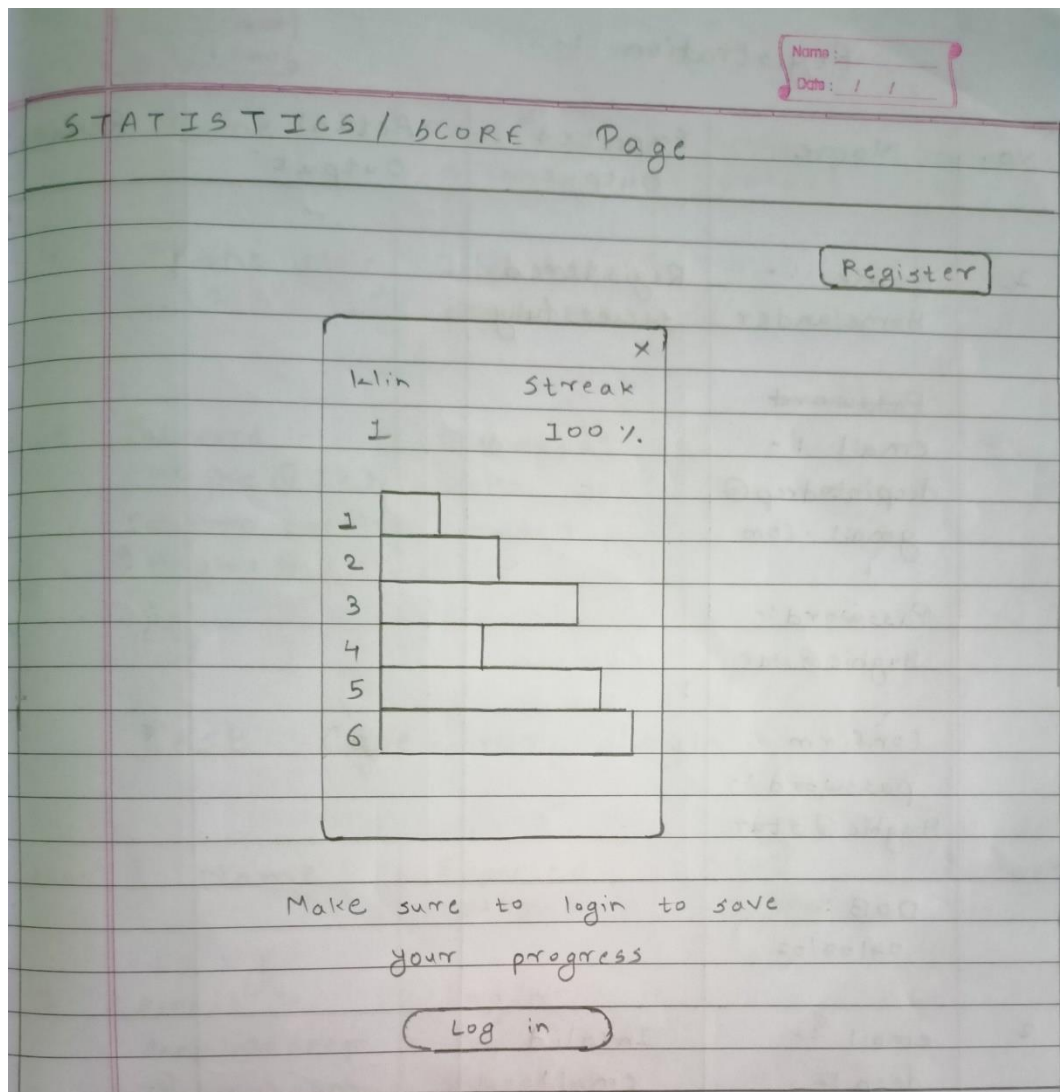 Name :
Date : / /
STATISTICS / SCORE Page
Register
x
Win Streak
1 100 %.
1
2
3
4
5
6
Make sure to login to save
your progress
Log in